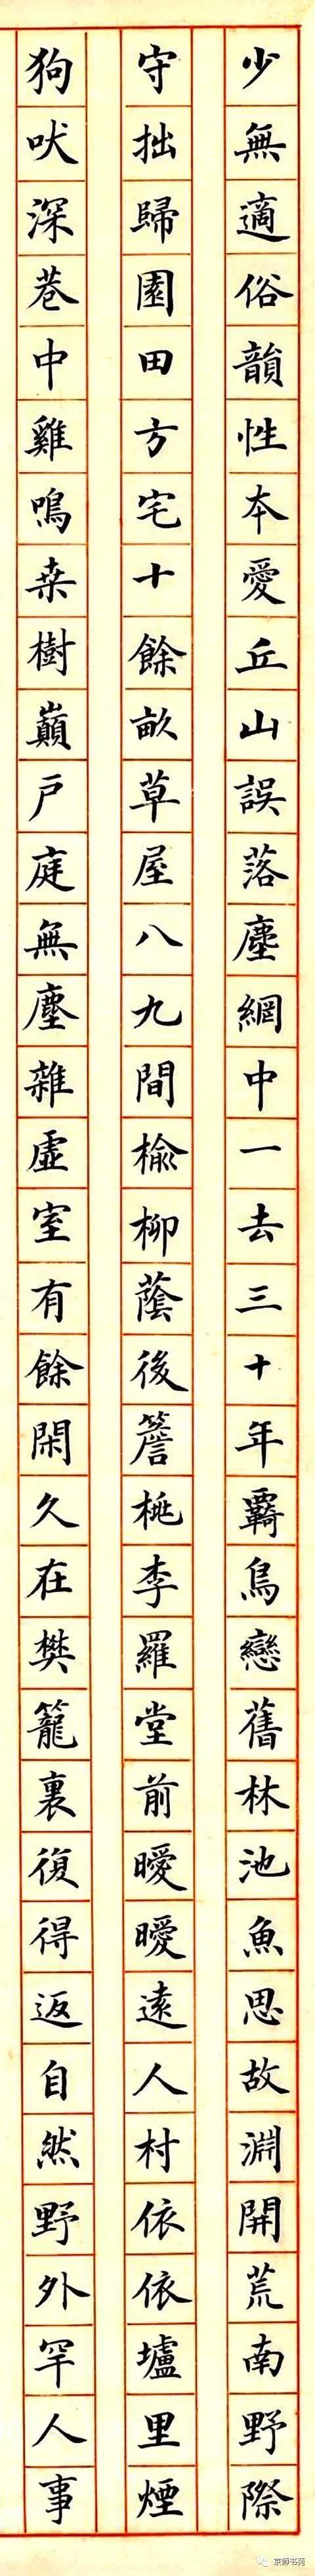 少無適俗韻性本愛丘山誤落塵網中一去三十年覊鳥戀舊林池魚思故淵開荒南野際
守拙歸園田方宅十餘畝草屋八九間榆柳蔭後簷桃李羅堂前曖曖遠人村依依墟里煙
狗吠深巷中雞鳴桒樹巔戶庭無塵雜虛室有餘閑久在樊籠裏復得返自然野外罕人事
京师书苑